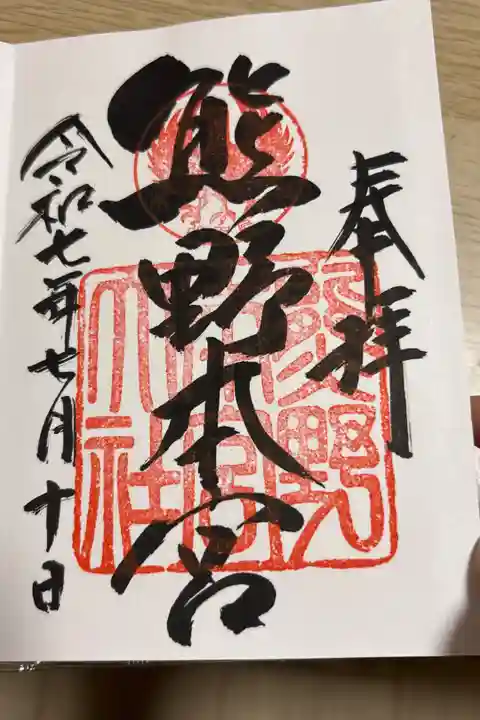 奉拝
熊野本宮
令和七年七月十日
熊野
本宮
大社